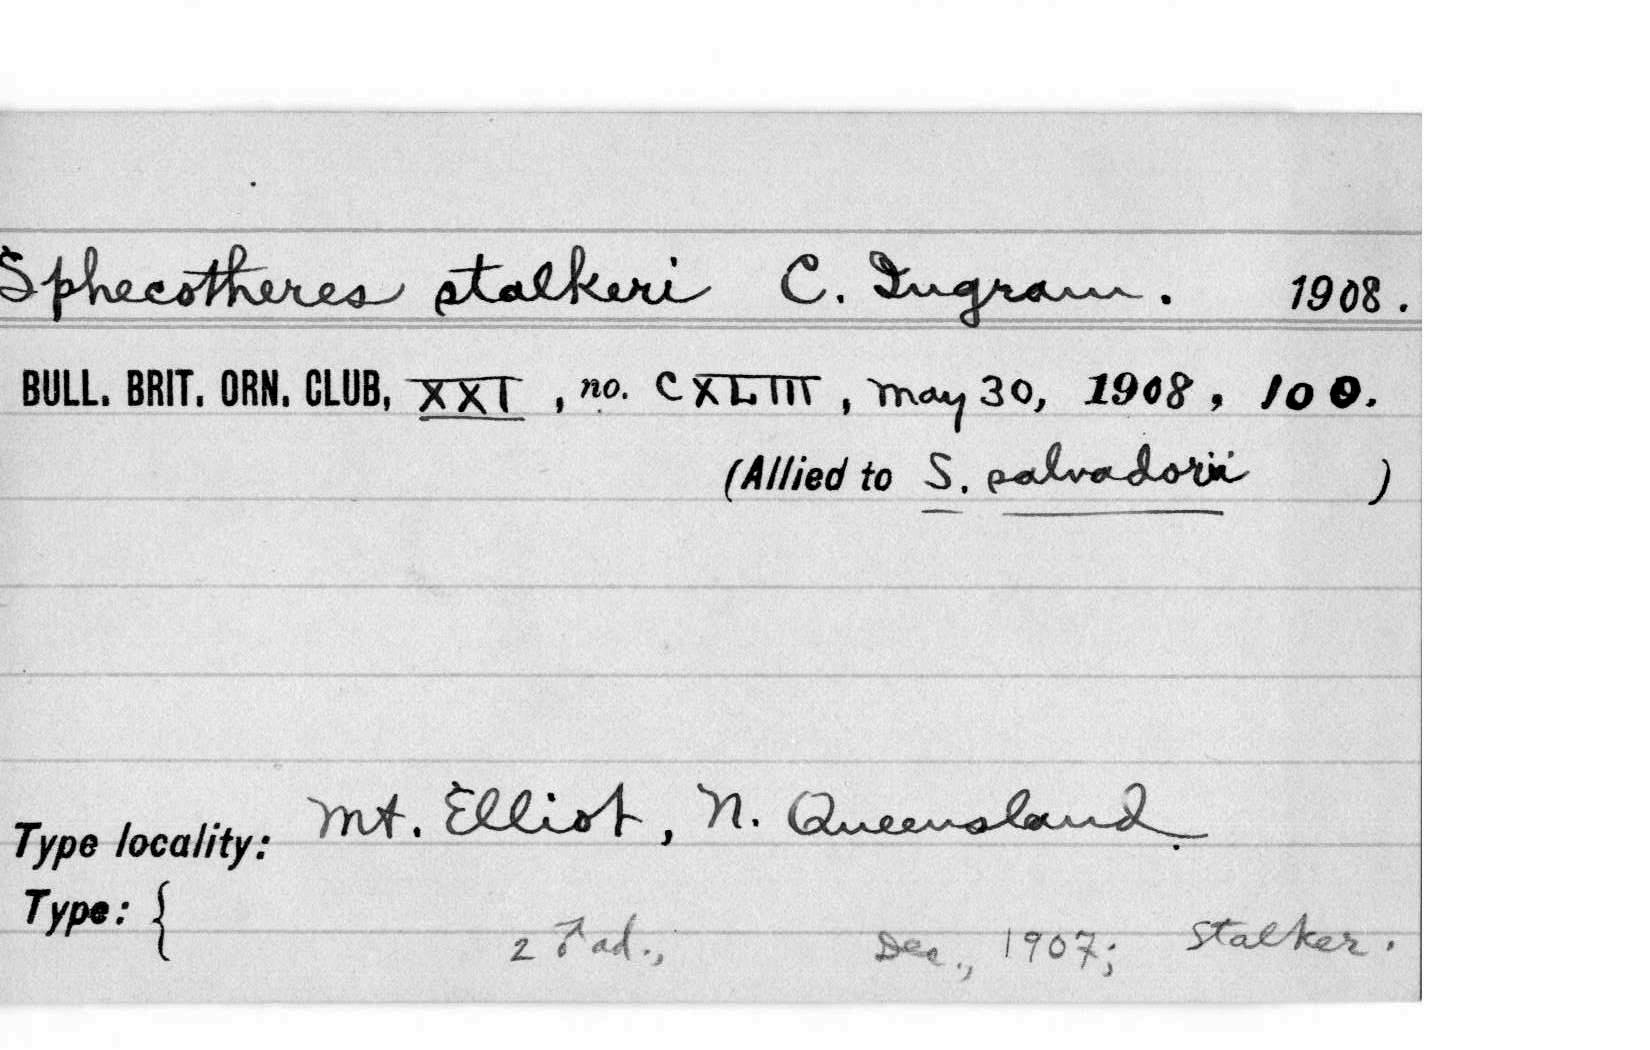 Sphecotheres stalkeri C. Ingram. 1908.
BULL. BRIT. ORN. CLUB, XXI, no. CXLIII, May 30, 1908, 100.
(Allied to S. salvadorii )
Type locality: Mt. Elliot, N. Queensland.
Type: {
2 ♂ ad., Dec., 1907; Stalker.